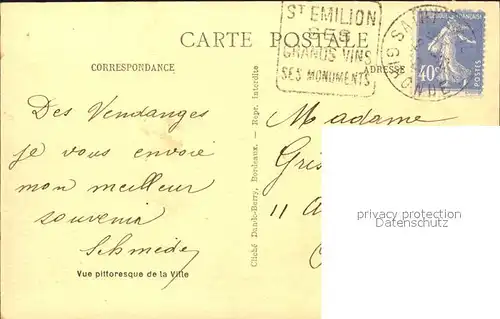 CARTE POSTALE
ST EMILION
SES
GRANDS VINS
SES MONUMENTS
40c
POSTES
CORRESPONDANCE
ADRESSE
Des Vendanges
je vous envoie
mon meilleur
souvenir
Schmede
Vue pittoresque de la Ville
Cliché Dando-Berry, Bordeaux. - Repr. Interdite
Madame
Gris
11 A
privacy protection
Datenschutz